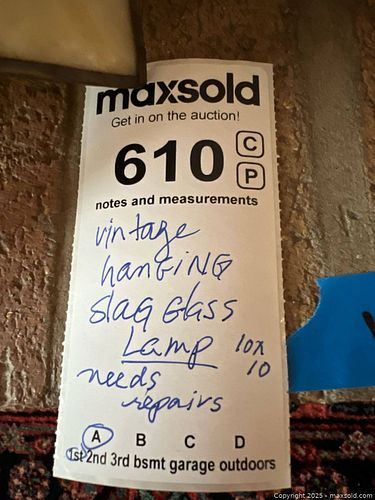 maxsold
Get in on the auction!
610 C
P
notes and measurements
vintage
hanging
slag glass
Lamp 10x
10
needs
repairs
A B C D
1st 2nd 3rd bsmt garage outdoors
Copyright 2025 - maxsold.com